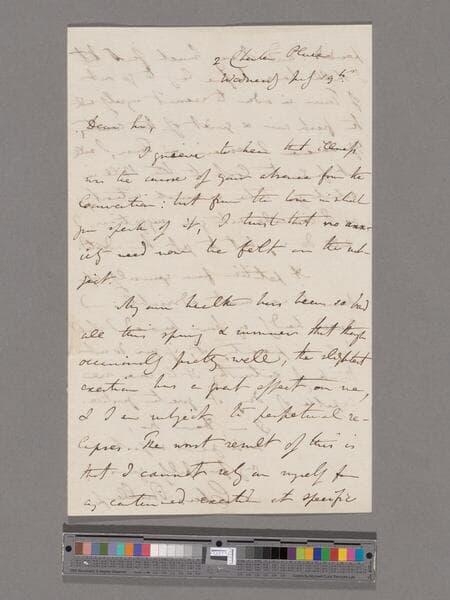 2 Chester Place
Wednesday July 19th
Dear Sir,
I grieve to hear that illness
was the cause of your absence from the
Convocation: but from the tone in which
you speak of it, I trust that no anx-
iety need now be felt on the sub-
ject.
My own health has been so bad
all this spring & summer that though
occasionally pretty well, the slightest
exertion has a great effect on me,
& I am subject to perpetual re-
lapses. The worst result of this is
that I cannot rely on myself for
any continued exertion at specific